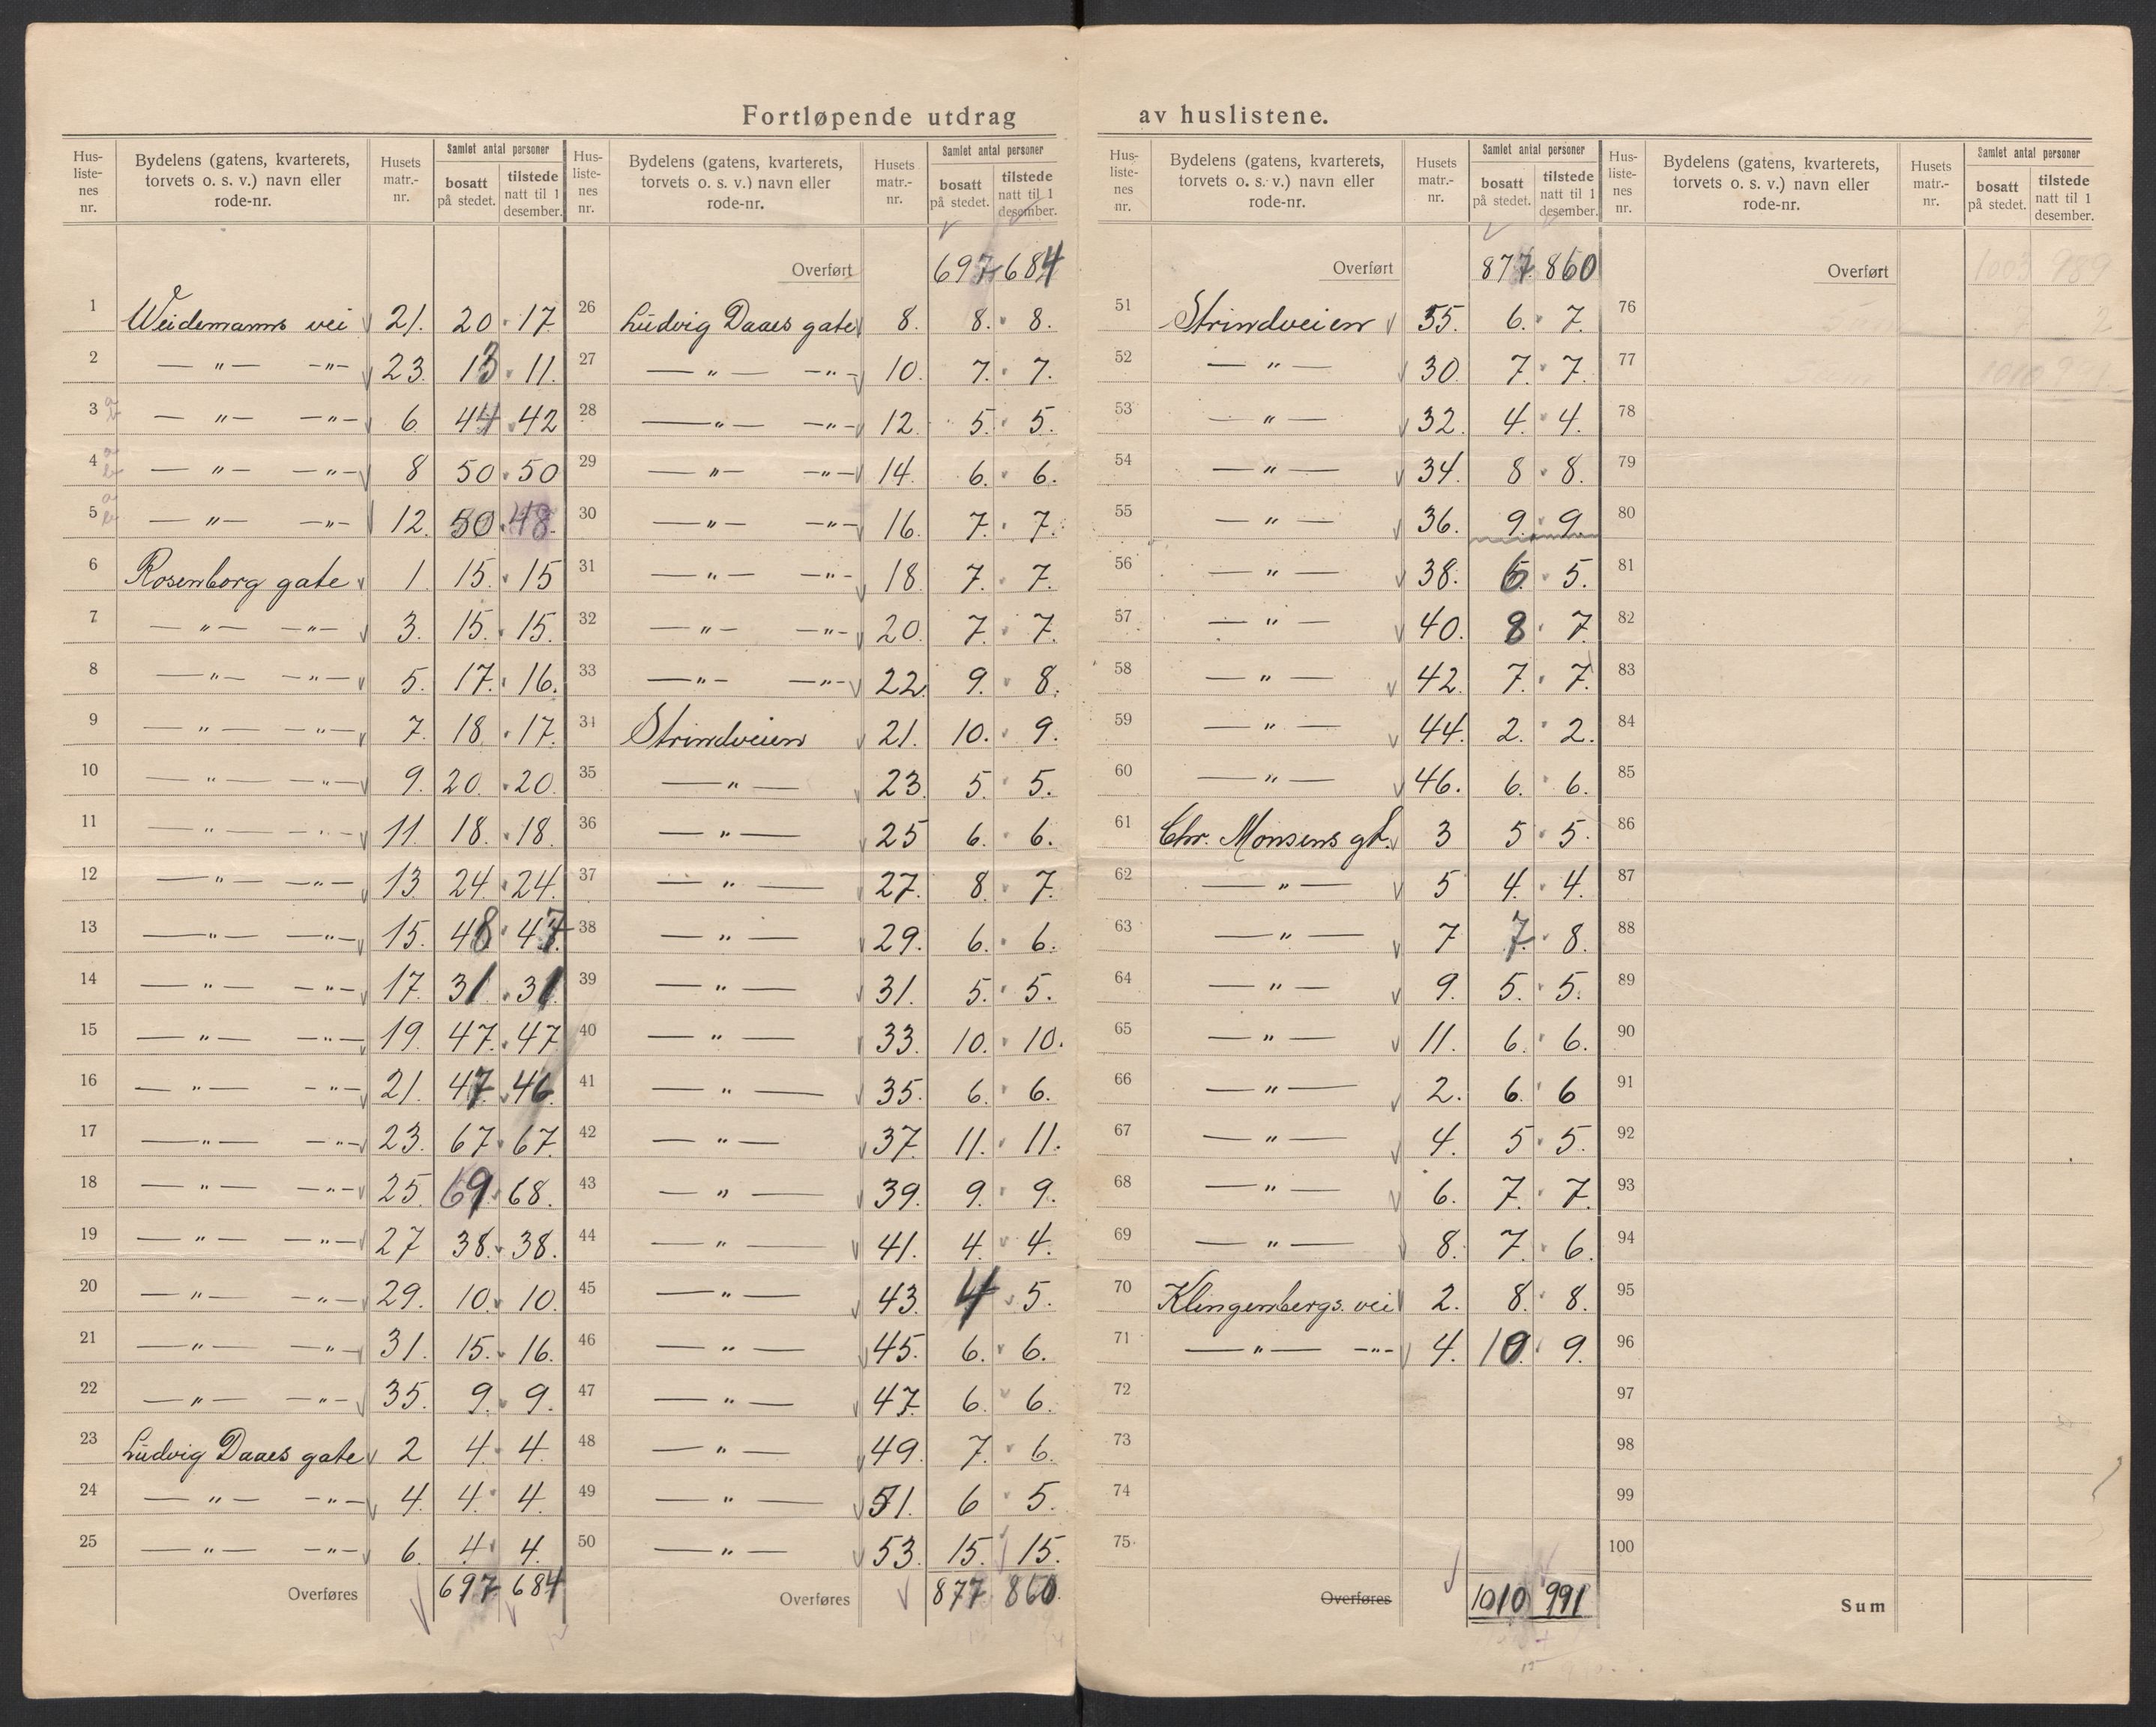 Fortløpende utdrag av huslistene.
Hus-listenes nr. Bydelens (gatens, kvarterets, torvets o. s. v.) navn eller rode-nr. Husets matr.-nr. Samlet antal personer bosatt på stedet. tilstede natt til 1 desember.
1 Weidemanns vei 21. 20 17
2 — " — — " — 23. 13 11.
3 — " — — " — 6 44 42
4 — " — — " — 8 50 50
5 — " — — " — 12. 50 48.
6 Rosenborg gate 1 15. 15
7 — " — — " — 3. 15. 15.
8 — " — — " — 5. 17. 16.
9 — " — — " — 7. 18. 17.
10 — " — — " — 9. 20. 20.
11 — " — — " — 11. 18. 18.
12 — " — — " — 13 24. 24.
13 — " — — " — 15. 48 47
14 — " — — " — 17. 31 31
15 — " — — " — 19. 47. 47
16 — " — — " — 21. 47. 46.
17 — " — — " — 23. 67. 67.
18 — " — — " — 25. 69. 68.
19 — " — — " — 27 38. 38.
20 — " — — " — 29. 10. 10.
21 — " — — " — 31. 15. 16.
22 — " — — " — 35. 9. 9.
23 Ludvig Daaes gate 2 4. 4.
24 — " — — " — 4. 4. 4.
25 — " — — " — 6. 4. 4.
Overføres 697 684
Hus-listenes nr. Bydelens (gatens, kvarterets, torvets o. s. v.) navn eller rode-nr. Husets matr.-nr. Samlet antal personer bosatt på stedet. tilstede natt til 1 desember.
Overført 697 684
26 Ludvig Daaes gate 8. 8. 8.
27 — " — — " — 10. 7. 7.
28 — " — — " — 12. 5. 5.
29 — " — — " — 14. 6. 6.
30 — " — — " — 16. 7. 7.
31 — " — — " — 18. 7. 7.
32 — " — — " — 20. 7. 7.
33 — " — — " — 22. 9. 8.
34 Strindveien 21. 10. 9.
35 — " — 23. 5. 5.
36 — " — 25 6. 6.
37 — " — 27. 8. 7.
38 — " — 29. 6. 6.
39 — " — 31. 5. 5.
40 — " — 33. 10. 10.
41 — " — 35. 6. 6.
42 — " — 37. 11. 11.
43 — " — 39. 9. 9.
44 — " — 41. 4. 4.
45 — " — 43. 4 5.
46 — " — 45. 6. 6.
47 — " — 47. 6. 6.
48 — " — 49. 7. 6.
49 — " — 51. 6 5.
50 — " — 53. 15. 15.
Overføres 877 860
Hus-listenes nr. Bydelens (gatens, kvarterets, torvets o. s. v.) navn eller rode-nr. Husets matr.-nr. Samlet antal personer bosatt på stedet. tilstede natt til 1 desember.
Overført 877 860
51 Strindveien 55. 6. 7.
52 — " — 30. 7. 7.
53 — " — 32. 4. 4.
54 — " — 34. 8 8.
55 — " — 36. 9. 9.
56 — " — 38. 6 5.
57 — " — 40. 8 7
58 — " — 42. 7. 7.
59 — " — 44. 2. 2.
60 — " — 46. 6. 6.
61 Chr. Monsens gt. 3 5 5.
62 — " — 5 4. 4.
63 — " — 7 7. 8.
64 — " — 9. 5. 5.
65 — " — 11. 6. 6.
66 — " — 2. 6. 6
67 — " — 4. 5 5.
68 — " — 6. 7. 7.
69 — " — 8. 7. 6.
70 Klingenbergs. vei 2. 8. 8.
71 — " — — " — 4. 10. 9.
72
73
74
75
Overføres 1010 991
Hus-listenes nr. Bydelens (gatens, kvarterets, torvets o. s. v.) navn eller rode-nr. Husets matr.-nr. Samlet antal personer bosatt på stedet. tilstede natt til 1 desember.
Overført 1003 989
76 2
77 1010 991
78
79
80
81
82
83
84
85
86
87
88
89
90
91
92
93
94
95
96
97
98
99
100
Sum